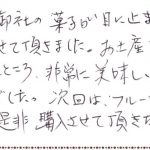 御社の菓子が目に止ま
せて頂きました。お土産
ところ、非常に美味しい
でした。次回は、フルー
是非購入させて頂きた